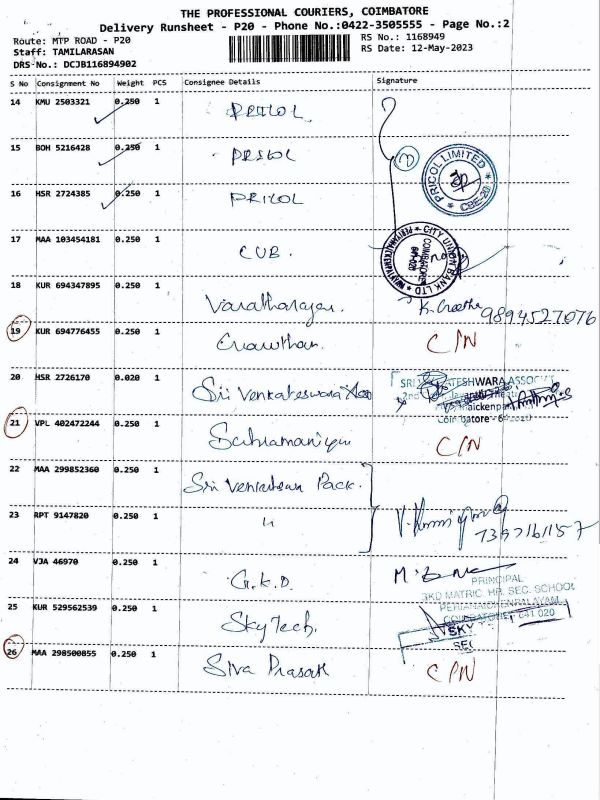 THE PROFESSIONAL COURIERS, COIMBATORE
Delivery Runsheet - P20 - Phone No.:0422-3505555 - Page No.:2
Route: MTP ROAD - P20
RS No.: 1168949
Staff: TAMILARASAN
RS Date: 12-May-2023
DRS-No.: DCJB116894902
S No Consignment No Weight PCS Consignee Details Signature
14 KMU 2503321 0.250 1 PRICOL
15 BOH 5216428 0.250 1 PRICOL
16 HSR 2724385 0.250 1 PRICOL
PRICOL LIMITED
* CBE-20 *
17 MAA 103454181 0.250 1 CUB.
CITY UNION BANK LTD
COIMBATORE
18 KUR 694347895 0.250 1 Varatharajan. K. Geetha 9894527076
19 KUR 694776455 0.250 1 C/N
20 HSR 2726170 0.020 1 Sri Venkateswara Asso
SRI VENKATESHWARA ASSOCI
21 VPL 402472244 0.250 1 Subramaniyan C/N
22 MAA 299852360 0.250 1 Sri Venkateswara Pack.
23 RPT 9147820 0.250 1 "
24 VJA 46970 0.250 1 G.K.D.
PRINCIPAL
MATRIC. HR. SEC. SCHOOL
PERIANAICKENPALAYAM,
COIMBATORE - 641 020
25 KUR 529562539 0.250 1 Sky Tech.
SKY
SEC
26 MAA 298500855 0.250 1 Siva Prasath C/N